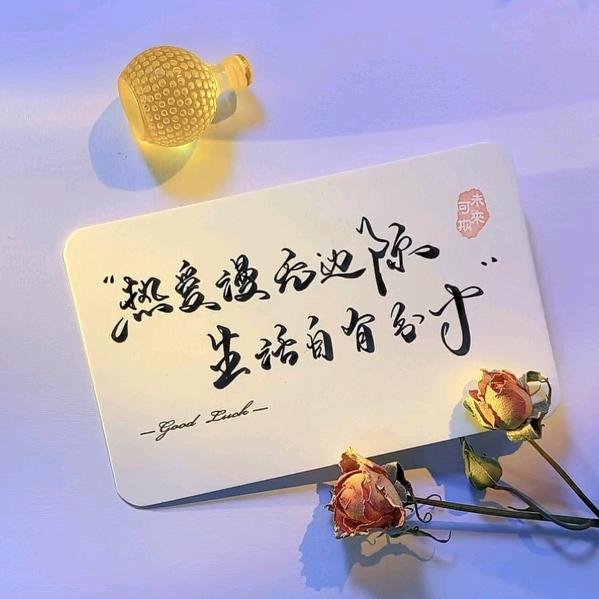 未來
可期
“热爱漫无边际
生活自有分寸”
—Good Luck—